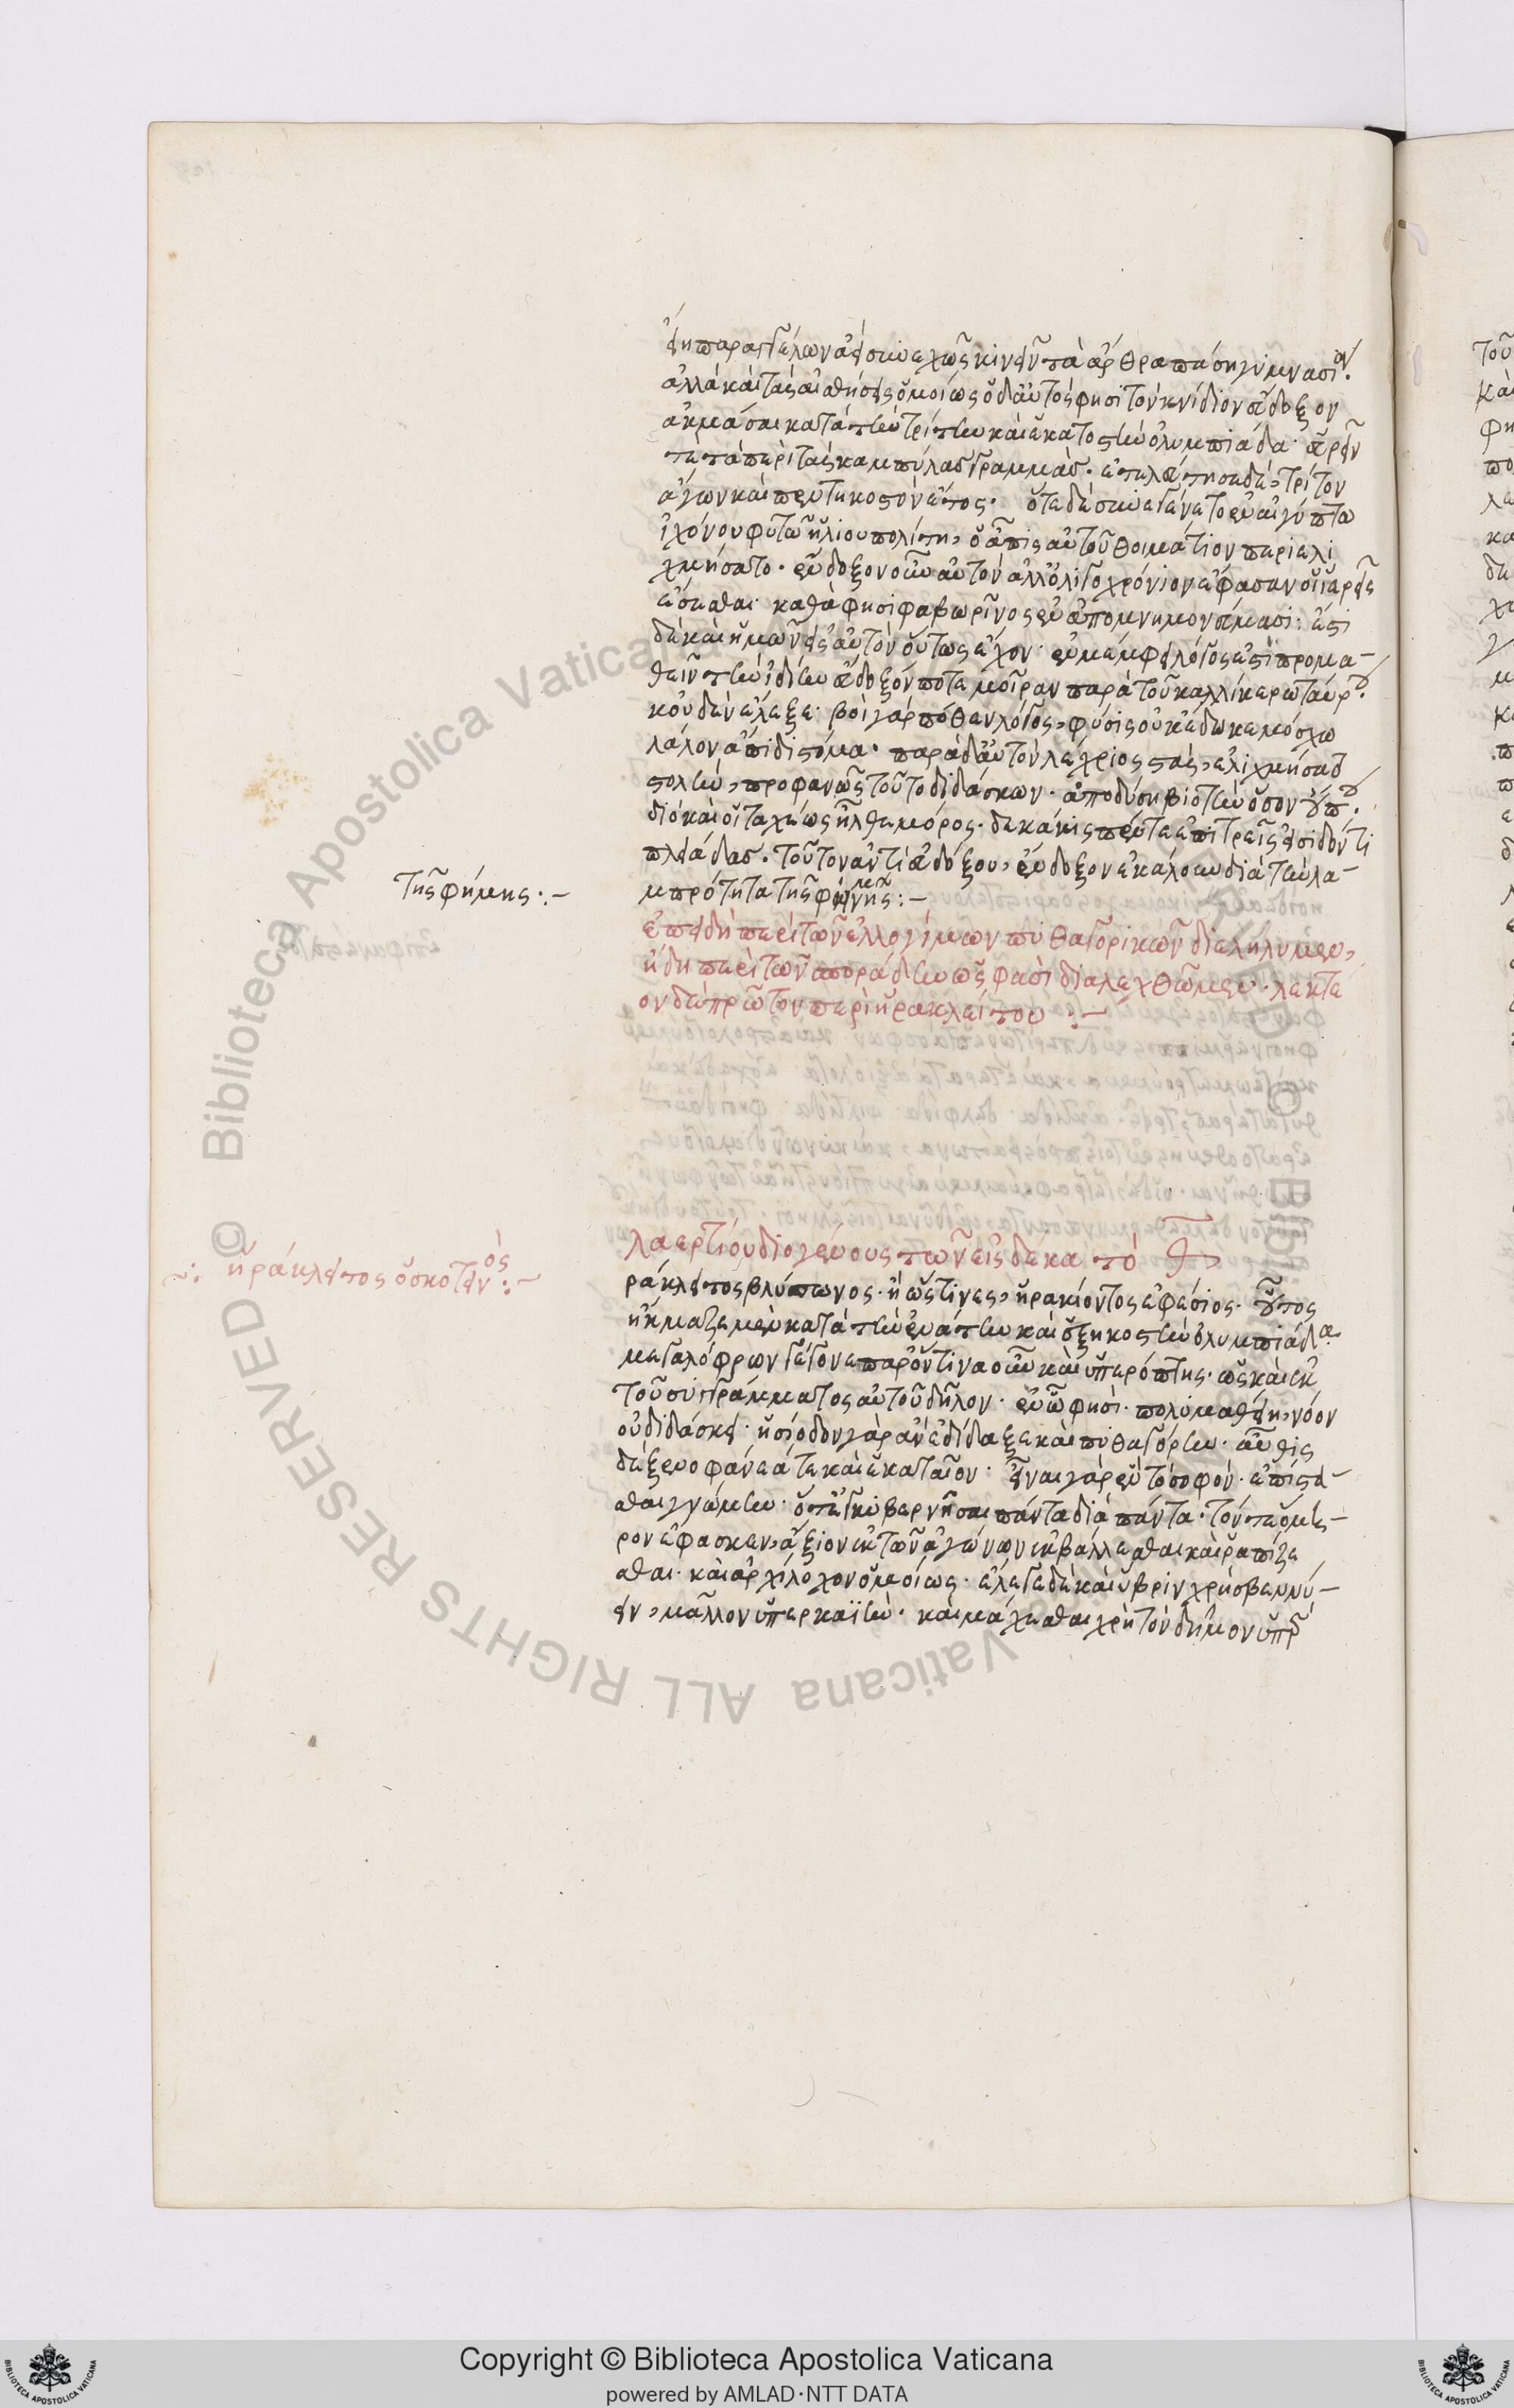 ἔφη παραγγέλλων ἀεὶ συνεχῶς κινεῖν τὰ ἄρθρα πάσῃ γυμνασίᾳ.
ἀλλὰ καὶ τὰς αἰσθήσεις ὁμοίως ὁ δ' αὐτός φησι τὸν κνίδιον εὔδοξον
ἀκμάσαι κατὰ τὴν τρίτην καὶ ἑκατοστὴν ὀλυμπιάδα· εὑρεῖν
τε τὰ περὶ τὰς καμπύλας γραμμάς. ἐτελεύτησε δὲ, τρίτον
ἄγων καὶ πεντηκοστὸν ἔτος. ὅτε δὲ συνεγένετο ἐν αἰγύπτω
ἰχόνουφι τῶ ἡλιουπολίτῃ, ὁ ἆπις αὐτοῦ θοιμάτιον περιελι
χμήσατο. ἔνδοξον οὖν αὐτὸν ἀλλ' ὀλιγοχρόνιον ἔφασαν οἱ ἱερεῖς
ἔσεσθαι καθά φησι φαβωρῖνος ἐν ἀπομνημονεύμασι: ἔστι
δὲ καὶ ἡμῶν εἰς αὐτὸν οὕτως ἔχον· ἐν μέμφει λόγος ἐστὶ προμα-
θεῖν τὴν ἰδίην εὔδοξόν ποτε μοῖραν παρὰ τοῦ καλλίκερω ταύρου.
κοὐδὲν ἔλεξε· βοὶ γὰρ πόθεν λόγος, φύσις οὐκ ἔδωκε μόσχω
λάλον ἄπιδι στόμα. παρὰ δ' αὐτὸν λέχριος στάς, ἐλιχμήσατο
στολὴν, προφανῶς τοῦτο διδάσκων. ἀποδύσῃ βιοτὴν ὅσον οὔπου.
διὸ καὶ οἱ ταχέως ἦλθε μόρος. δεκάκις πέντε ἐπὶ τρεῖς εἰσιδόντι
πλειάδας. τοῦτον ἀντὶ εὐδόξου, ἔνδοξον ἐκάλουν διὰ τὴν λα-
τῆς φήμης:-
μπρότητα τῆς φήμης:-
ἐπειδὴ περὶ τῶν ἐλλογίμων πυθαγορικῶν διεληλύμεν,
ἤδη περὶ τῶν σποράδην ὥς φασι διαλεχθῶμεν. λεκτέ
ον δὲ πρῶτον περὶ ἡρακλείτου:-
λαερτίου διογένους τῶν εἰς δέκα τὸ θ
~: ἡράκλειτος ὁ σκοτεινός:~
ράκλειτος βλύσωνος. ἢ ὥς τινες, ἡρακίοντος ἐφέσιος. οὗτος
ἤκμαζε μὲν κατὰ τὴν ἐνάτην καὶ ἑξηκοστὴν ὀλυμπιάδα.
μεγαλόφρων γέγονε παρ' ὅντινα οὖν καὶ ὑπερόπτης. ὡς καὶ ἐκ
τοῦ συγγράμματος αὐτοῦ δῆλον· ἐν ὧ φησι. πολυμαθείη, νόον
οὐ διδάσκει. ἡσίοδον γὰρ ἂν ἐδίδαξε καὶ πυθαγόρην. αὖθις
δὲ ξενοφάνεά τε καὶ ἑκαταῖον· εἶναι γὰρ ἓν τὸ σοφόν. ἐπίστα-
σθαι γνώμην. ὅτε ἐγκυβερνῆσαι πάντα διὰ πάντα. τόν τε ὅμη-
ρον ἔφασκεν, ἄξιον ἐκ τῶν ἀγώνων ἐκβάλλεσθαι καὶ ῥαπίζε
σθαι. καὶ ἀρχίλοχον ὁμοίως. ἔλεγε δὲ καὶ ὕβριν χρὴ σβεννύ-
ειν, μᾶλλον ὑπερκαϊὴν. καὶ μάχεσθαι χρὴ τὸν δῆμον ὑπὲρ
Copyright © Biblioteca Apostolica Vaticana
powered by AMLAD·NTT DATA